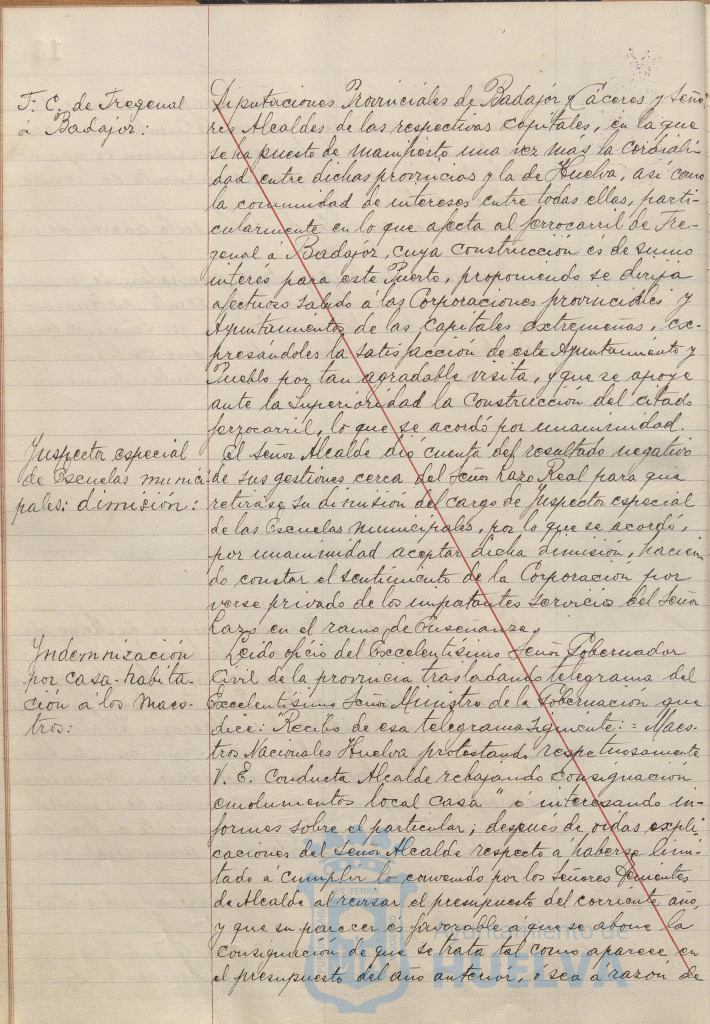 F. C. de Fregenal
á Badajoz:
Diputaciones Provinciales de Badajoz y Cáceres y Seño-
res Alcaldes de las respectivas capitales, en la que
se ha puesto de manifiesto una vez mas la cordiali-
dad entre dichas provincias y la de Huelva, así como
la comunidad de intereses entre todas ellas, parti-
cularmente en lo que afecta al ferrocarril de Fre-
genal á Badajóz, cuya construcción és de sumo
interés para este Puerto, proponiendo se dirija
afectuoso saludo á las Corporaciones provinciales y
Ayuntamientos de las capitales extremeñas, ex-
presándoles la satisfacción de este Ayuntamiento y
Pueblo por tan agradable visita, y que se apoye
ante la Superioridad la construcción del citado
ferrocarril, lo que se acordó por unanimidad.
Inspector especial
de Escuelas munici
pales: dimisión:
El señor Alcalde dió cuenta del resultado negativo
de sus gestiones cerca del Señor Lazo Real para que
retirase su dimisión del cargo de Inspector especial
de las Escuelas Municipales, por lo que se acordó,
por unanimidad aceptar dicha dimisión, hacien-
do constar el sentimiento de la Corporación por
verse privado de los importantes servicios del Señor
Lazo en el ramo de Enseñanza.
Indemnización
por casa-habita-
ción á los Maes-
tros:
Leido oficio del Excelentísimo Señor Gobernador
Civil de la provincia trasladando telegrama del
Excelentísimo Señor Ministro de la Gobernación que
dice: "Recibo de esa telegrama siguiente: = Maes-
tros Nacionales Huelva protestando respetuosamente
V. E. conducta Alcalde rebajando consignación
emolumentos local casa" é interesando in-
formes sobre el particular; después de oidas expli-
caciones del Señor Alcalde respecto á haberse limi-
tado a cumplir lo convenido por los señores Tenientes
de Alcalde al revisar el presupuesto del corriente año,
y que su parecer és favorable á que se abone la
consignación de que se trata tal como aparece en
el presupuesto del año anterior, ó sea á razón de
ET TERRA
Ayuntamiento de
HUELVA